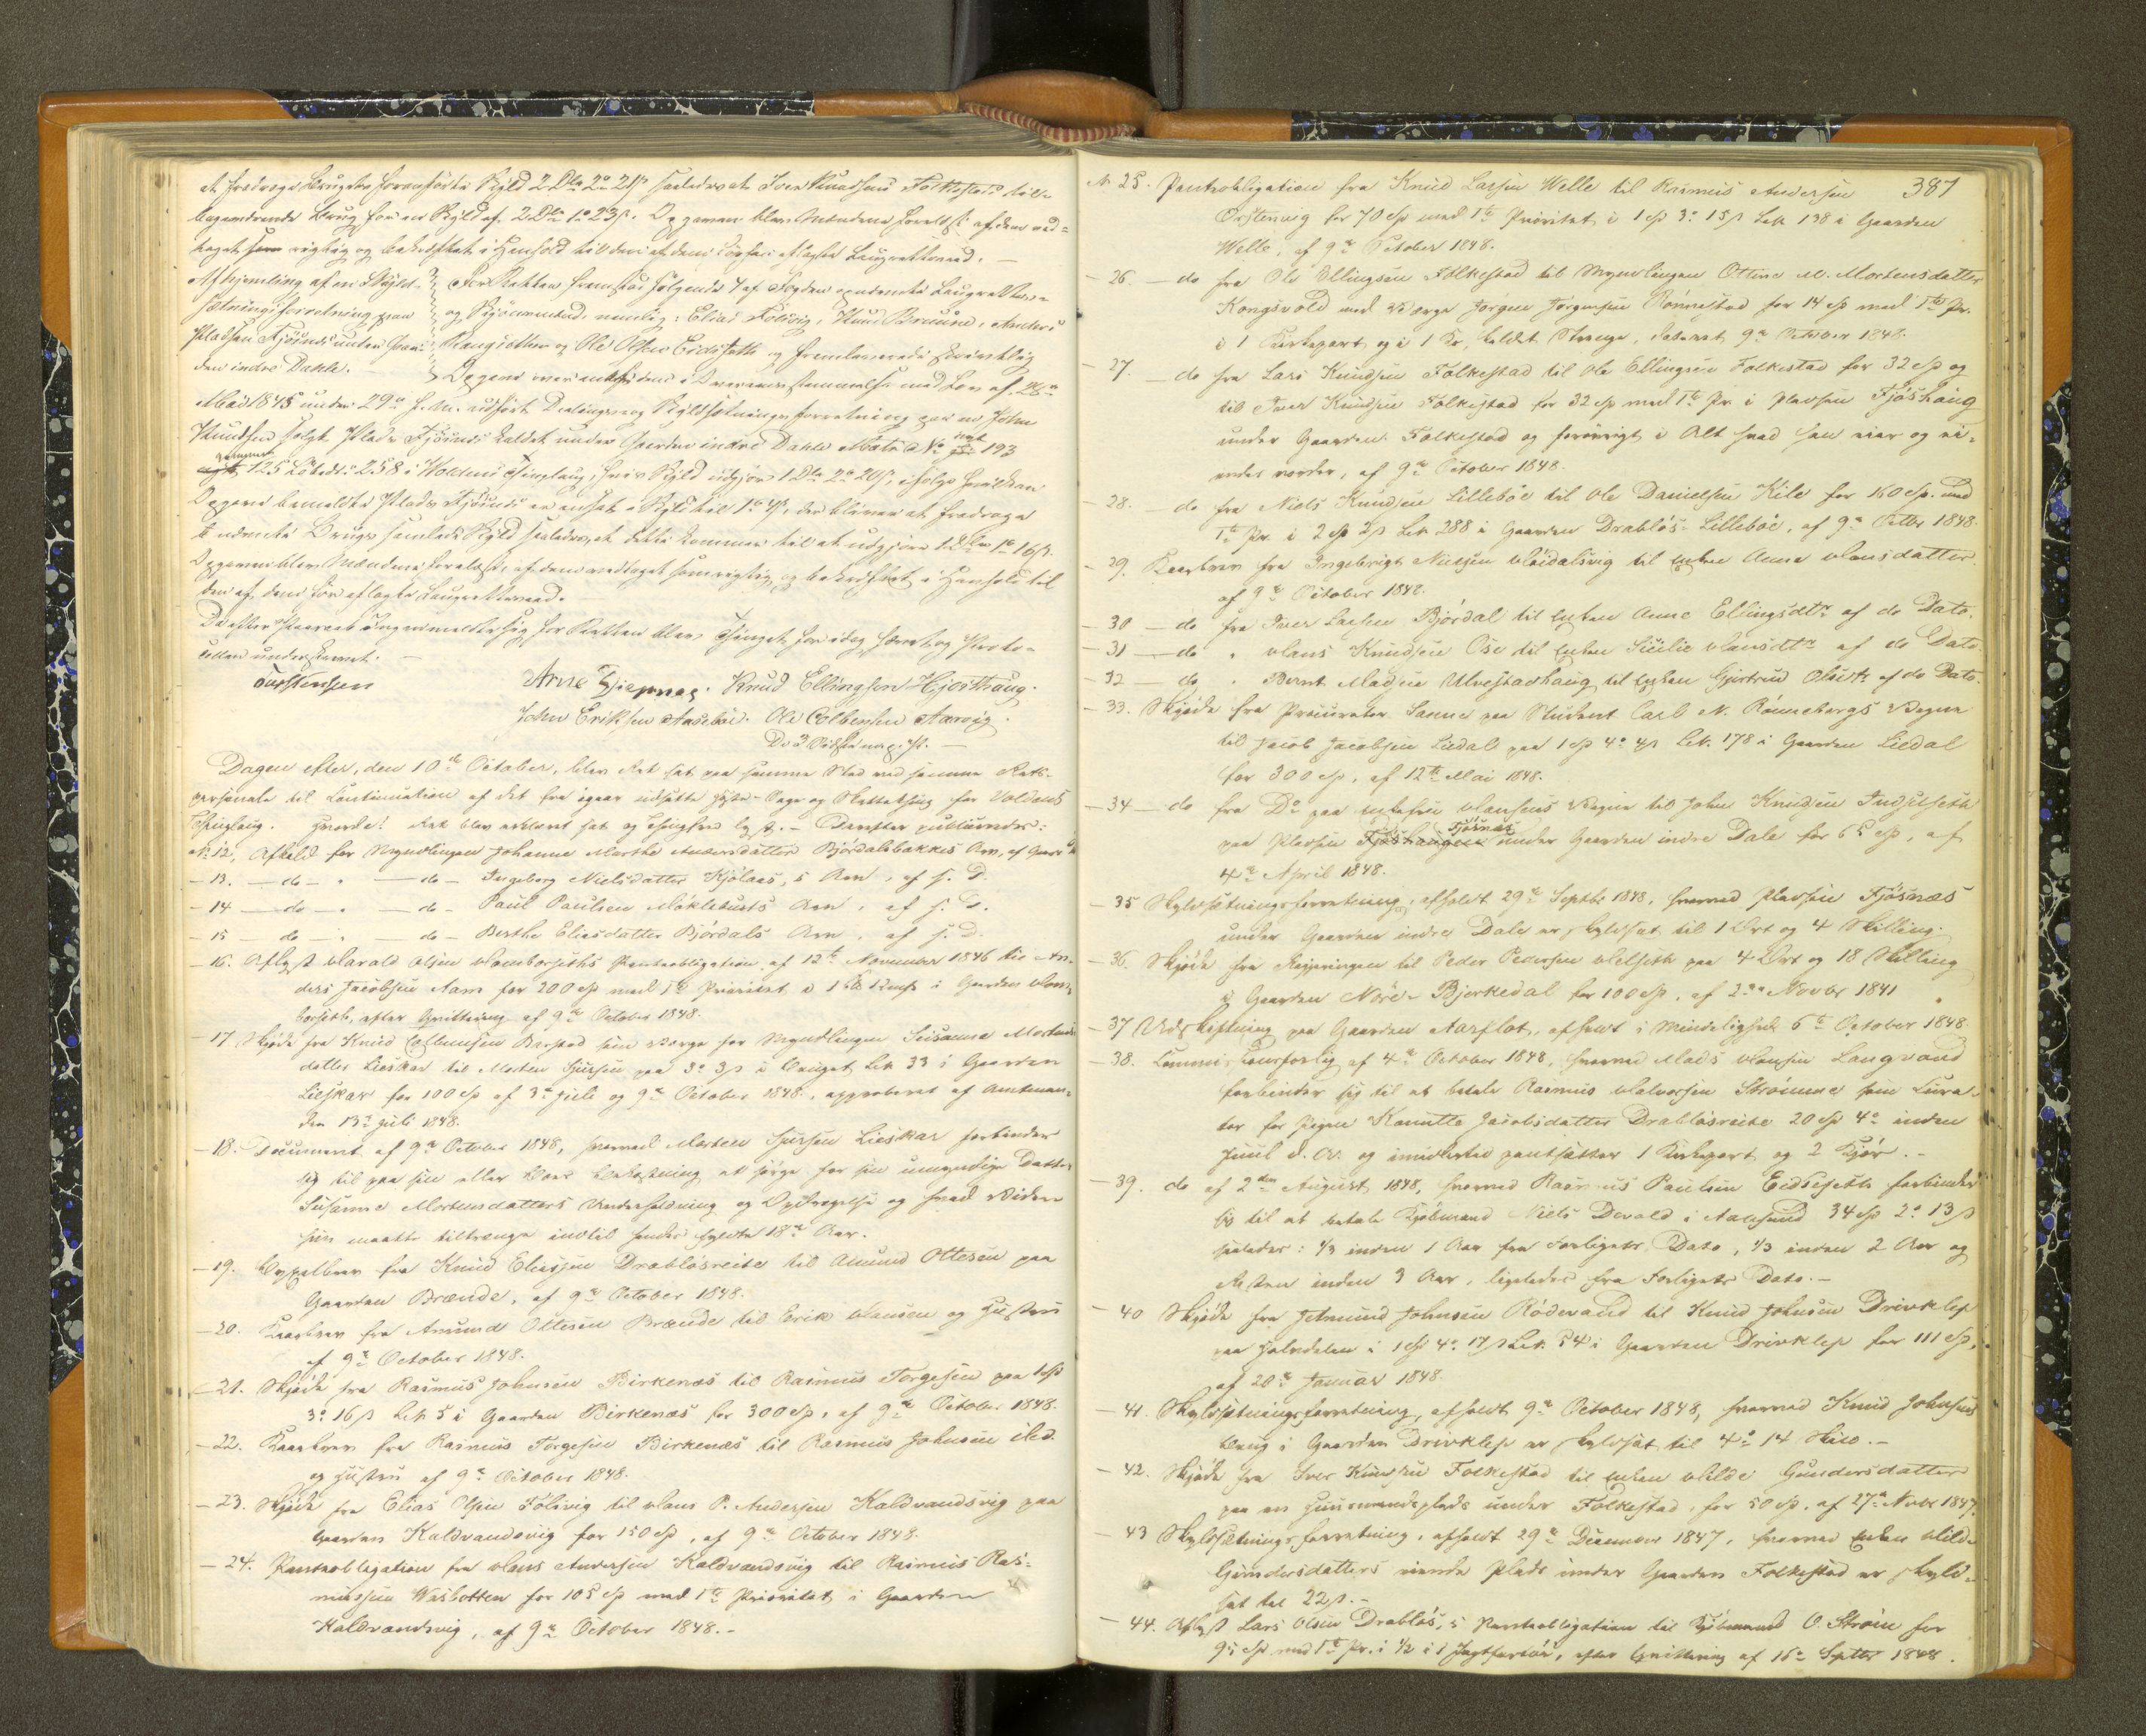 at fradrage Brugets foranførte Skyld 2 Dlr 2 ort 21 s saaledes at Iver Knudsens Folkestads til-
bageværende Brug for en Skyld af 2 Dlr 1 ort 23 s. Oggaven blev Mændene forelæst af dem ved-
taget som rigtig og bekræftet i Henhold til den af dem før aflagte Laugrettesed. —
Afhjemling af en Skyld- For Retten fremstod følgende 4 af Fogden opnævnte Laugrettes-
sætningsforretning paa og Skjønsmænd, nemlig: Elias Folsvig, Knud Bruune, Anders
Pladsen Fjösnæs under Gaar- og Ole Olsen Eidseth og fremleverede skriftlig
den indre Dahle. Oggave over en af dem i Overensstemmelse med Lov af 28de
Mai 1845 under 29de f. M. udført Delings- og Skyldsætningsforretning paa en John
Knudsen solgt Plads Fjösnæs kaldet under Gaarden indre Dahle Matr. No 193
125 Løbe No 258 i Woldens Thinglaug, hvis Skyld udgjør 1 Dlr 2 ort 20 s, ifølge hvilken
Oggave bemeldte Plads Fjösnæs er ansat i Skyld til 1 ort 4 s, der bliver at fradrage
bemeldte Brugs samlede Skyld saaledes, at dette kommer til at udgjøre 1 Dlr 1 ort 16 s.
Oggaven blev Mændene forelæst, af dem vedtaget som rigtig og bekræftet i Henhold til
den af dem før aflagte Laugrettesed.
Da efter Paaraab Ingen meldte sig for Retten blev Thinget for idag hævet og Proto-
collen underskrevet. —
Torstensen Arne Knud Ellingsen Hjorthaug.
John Eriksen Aasebøe. Ole Colbensen Aarvig.
Dagen efter, den 10de October, blev Ret sat paa samme Sted med samme Rets-
personale til Continuation af det fra igaar udsatte Høste- Sage og Skattething for Voldens
Thinglaug. Hvorda! Ret blev erklæret sat og Thingfred lyst. — Derefter publiceredes:
No 12, Afkald for Myndlingen Johanne Marthe Andersdatter Björdalsbakkes Arv, af Gaars D.
— 13. — do — „ — do — Ingeborg Nielsdatter Kjölaas, s Arv, af s. D.
— 14 — do — „ — do — Paul Paulsen Mökleburts Arv, af s. D.
— 15 — do — „ — do — Berthe Eliasdatter Björdals Arv, af s. D.
— 16. Aflyst Harald Olsen Homborseths Pantobligation af 12te November 1846 til An-
ders Jacobsen Aam for 200 Sp med 1ste Prioritet i 1 i Gaarden Hom-
borseth, efter Qvittering af 9de October 1848.
— 17 Skjöde fra Knud Colbensen Barstad som Værge for Myndlingen Susanna Mortens-
datter Lieskar til Morten Sjursen paa 3 ort 3 s i Bruget Lb 33 i Gaarden
Lieskar for 100 Sp af 3de Juli og 9de October 1848, approberet af Amtman-
den 13de Juli 1848.
— 18. Document af 9de October 1848, hvorved Morten Sjursen Lieskar forbinder
sig til paa sin eller Boes Bekostning at sørge for sin umyndige Datter
Susanne Mortensdatters Underholdning og Opdragelse og hvad Videre
hun maatte tiltrænge indtil hendes fyldte 18de Aar.
— 19. Bygselbrev fra Knud Eliassen Drablösreite til Amund Ottesen paa
Gaarden Brænde, af 9de October 1848.
— 20. Kaarbrev fra Amund Ottesen Brænde til Erik Hansen og Hustru
af 9de October 1848.
— 21. Skjöde fra Rasmus Johnsen Birkenæs til Rasmus Torgersen paa 1 Sp
3 ort 16 s Lb 5 i Gaarden Birkenæs for 300 Sp, af 9de October 1848.
— 22. Kaarbrev fra Rasmus Torgersen Birkenæs til Rasmus Johnsen ibd.
og Hustru af 9de October 1848.
— 23. Skjöde fra Elias Olsen Folsvig til Hans P. Andersen Kaldvandsvig paa
Gaarden Kaldvandsvig for 150 Sp, af 9de October 1848.
— 24. Pantobligation fra Hans Andersen Kaldvandsvig til Rasmus Ras-
mussen Wasbotten for 105 Sp med 1ste Prioritet i Gaarden
Kaldvandsvig, af 9de October 1848. —
387
N 25. Pantobligation fra Knud Larsen Welle til Rasmus Andersen
Örstenvig for 70 Sp med 1ste Prioritet i 1 Sp 3 ort 15 s Lb 138 i Gaarden
Welle, af 9de October 1848.
— 26. — do fra Ole Ellingsen Folkestad til Myndlingen Ottine M. Mortensdatter
Kongsvold med Værge Jörgen Jörgensen Rönnestad for 14 Sp med 1ste Pr.
i 1 Kirkepart og i 1 Ko, kaldet Stuuge, dateret 9de October 1848.
— 27. — do fra Lars Knudsen Folkestad til Ole Ellingsen Folkestad for 32 Sp og
til Iver Knudsen Folkestad for 32 Sp med 1ste Pr. i Pladsen Fjöshaug
under Gaarden Folkestad og forøvrigt i Alt hvad han eier og ei-
ende vorder, af 9de October 1848.
— 28. — do fra Niels Knudsen Lilleböe til Ole Danielsen Kile for 160 Sp. med
1ste Pr. i 2 Sp 2 s Lb 288 i Gaarden Drablös-Lilleböe, af 9de Octbr 1848.
— 29. Kaarbrev fra Ingebrigt Nielsen Höidalsvig til Enken Anne Hansdatter
af 9de October 1848.
— 30 — do fra Iver Larsen Björdal til Enken Anne Ellingsdtr af do Dato.
— 31 — do „ Hans Knudsen Ose til Enken Sicilie Hansdtr af do Dato.
— 32 — do „ Bernt Madsen Ulvestadhaug til Enken Gjertrud Olsdtr af do Dato.
— 33. Skjöde fra Procurator Sanne paa Student Carl N. Rönnebergs Vegne
til Jacob Jacobsen Liedal paa 1 Sp 4 ort 4 s Lb. 178 i Gaarden Liedal
for 300 Sp, af 12te Mai 1848.
— 34 — do fra Do paa Hansens Vegne til John Knudsen Indselseth
paa Pladsen Fjöshaugen Fjösnæs under Gaarden indre Dale for 65 Sp, af
4de April 1848.
— 35 Skyldsætningsforretning, afholdt 29de Septbr 1848, hvorved Pladsen Fjösnæs
under Gaarden indre Dale er skyldsat til 1 Ort og 4 Skilling.
— 36. Skjöde fra Regjeringen til Peder Pedersen Velseth paa 4 Ort og 18 Skilling
i Gaarden Nore-Bjerkedal for 100 Sp, af 2den Novbr 1841.
— 37 Udskiftning paa Gaarden Aarflot, afholdt i Mindelighed 6te October 1848.
— 38. Commis: Foreforlig af 4de October 1848, hvorved Mads Hansen Langvand
forbinder sig til at betale Rasmus Halvorsen Strömme som Cura-
tor for Pigen Kanutte Jacobsdatter Drablösreite 20 Sp 4 ort inden
Juul d. A. og imidlertid pantsætter 1 Kirkepart og 2 Kjör. —
— 39. do af 2den August 1848, hvorved Rasmus Paulsen Eidseseth forbinder
sig til at betale Kjöbmand Niels Devold i Aalesund 34 Sp 2 ort 13 s
saaledes: 1/3 inden 1 Aar fra Forligets Dato, 1/3 inden 2 Aar og
Resten inden 3 Aar, ligeledes fra Forligets Dato. —
— 40 Skjöde fra Jetmund Johnsen Rödevand til Knud Johnsen Drivklep
paa Halvdelen i 1 Sp 4 ort 17 s Lb. 54 i Gaarden Drivklep for 111 Sp,
af 20de Januar 1848.
— 41. Skyldsætningsforretning, afholdt 9de October 1848, hvorved Knud Johnsens
Brug i Gaarden Drivklep er skyldsat til 4 ort 14 Skill. —
— 42. Skjöde fra Iver Knudsen Folkestad til Enken Hilde Gundersdatter
paa en Huusmandsplads under Folkestad, for 50 Sp, af 27de Novbr 1847.
— 43 Skyldsætningsforretning, afholdt 29de December 1847, hvorved Enken Hilde
Gundersdatters eiende Plads under Gaarden Folkestad er skyld-
sat til 22 s. —
— 44. Aflyst Lars Olsen Drablös, s Pantobligation til Kjöbmand O. Ström for
95 Sp med 1ste Pr. i 1/2 i 1 Jagtfartöi, efter Qvittering af 16de Septbr 1848.